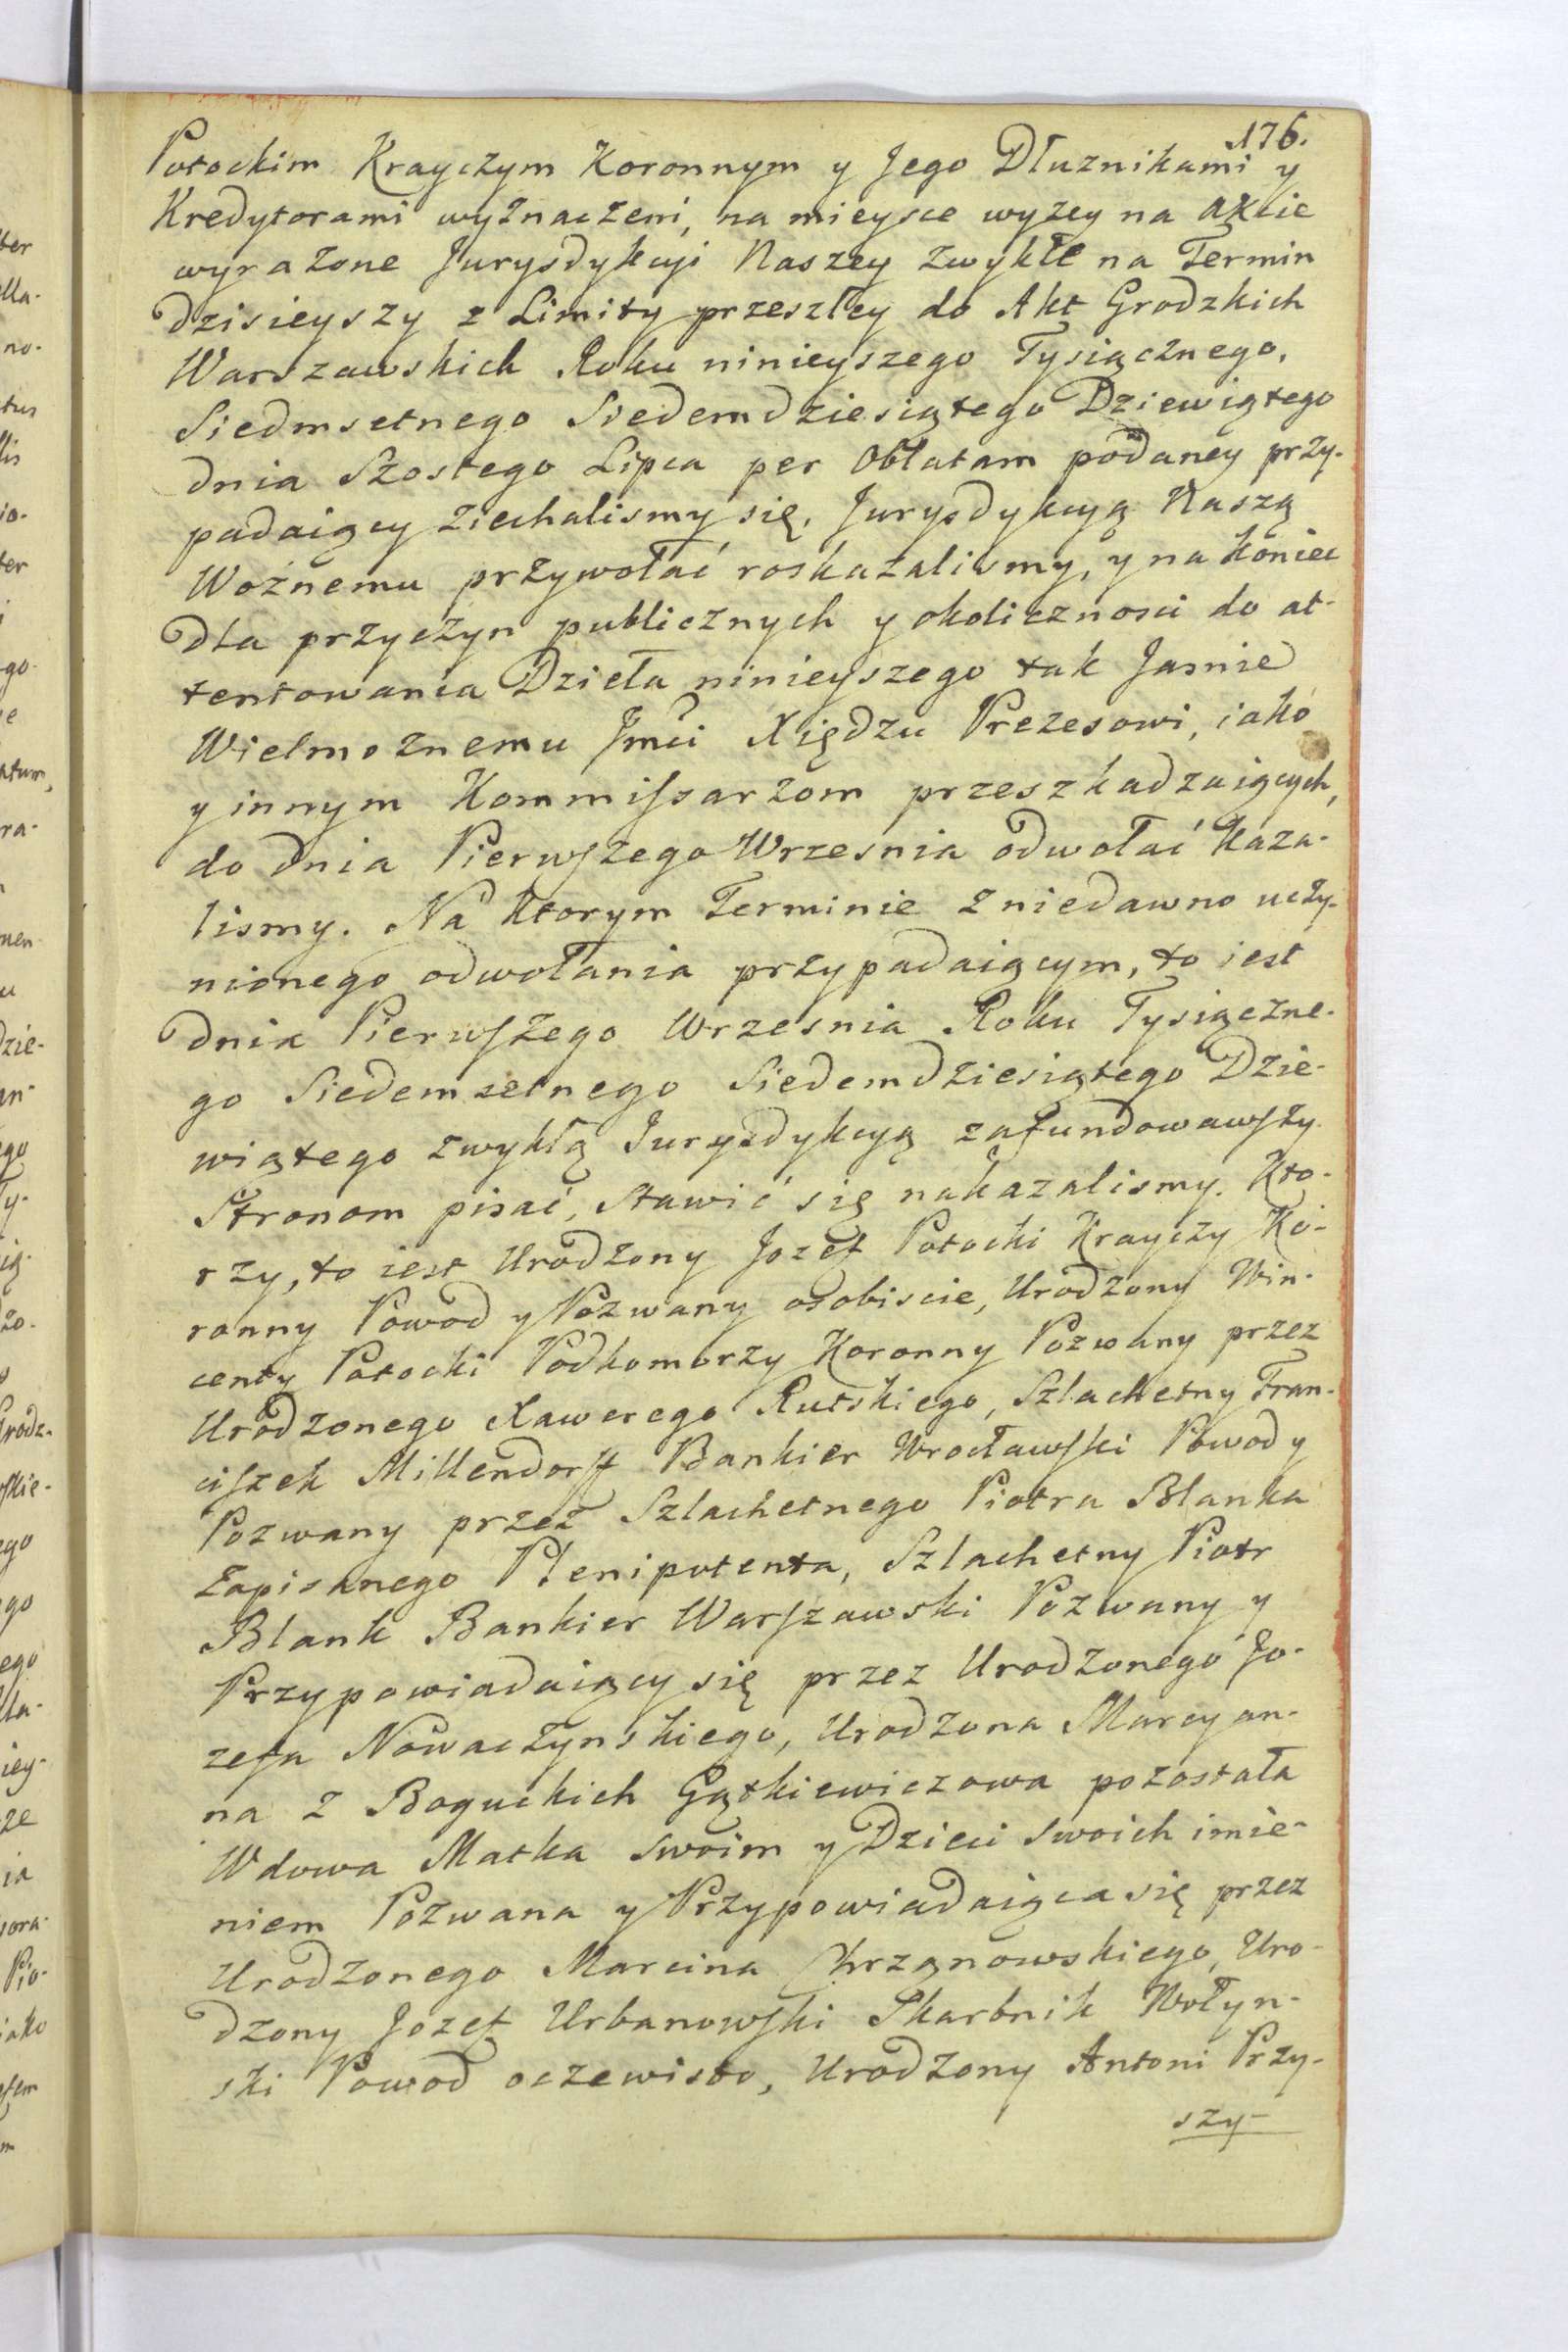 176.
Potockim Krayczym Koronnym y Jego Dłuznikami y
Kredytorami wyznaczeni, na mieysce wyzey na Akcie
wyrazone Jurysdykcyi Naszey zwykłe na Termin
dzisieyszy z Limity przeszłey do Akt Grodzkich
Warszawskich Roku ninieyszego Tysiącznego,
Siedmsetnego Siedemdziesiątego Dziewiątego
dnia Szostego Lipca per Oblatam podaney przy-
padaiący ziechalismy się, Jurysdykcyą Naszą
Woźnemu przywołać roskazalismy, y na koniec
dla przyczyn publicznych y okolicznosci do at-
tentowania Dzieła ninieyszego tak Jasnie
Wielmoznemu Jmci Xiędzu Prezesowi, iako
y innym Kommissarzom przeszkadzaiących,
do dnia Pierwszego Wrzesnia odwołać kaza-
lismy. Na ktorym Terminie z niedawno uczy-
nionego odwołania przypadaiącym, to iest
dnia Pierwszego Wrzesnia Roku Tysiączne-
go Siedemsetnego Siedemdziesiątego Dzie-
wiątego zwykłą Jurysdykcyą zafundowawszy
Stronom pisać, stawić się nakazalismy. Kto-
rzy, to iest Urodzony Jozef Potocki Krayczy Ko-
ronny Powod y Pozwany osobiscie, Urodzony Win-
centy Potocki Podkomorzy Koronny Pozwany przez
Urodzonego Xawerego Rutskiego, Szlachetny Fran-
ciszek Millendorff Bankier Wrocławski Powod y
Pozwany przez Szlachetnego Piotra Blanka
Zapisanego Plenipotenta, Szlachetny Piotr
Blank Bankier Warszawski Pozwany y
Przypowiadaiący się przez Urodzonego Jo-
zefa Nowaczynskiego, Urodzona Marcyan-
na z Boguckich Gątkiewiczowa pozostała
Wdowa Matka swoim y Dzieci swoich imie-
niem Pozwana y Przypowiadaiąca się przez
Urodzonego Marcina Chrzanowskiego, Uro-
dzony Jozef Urbanowski Skarbnik Wołyn-
ski Powod oczewisto, Urodzony Antoni Przy-
szy-